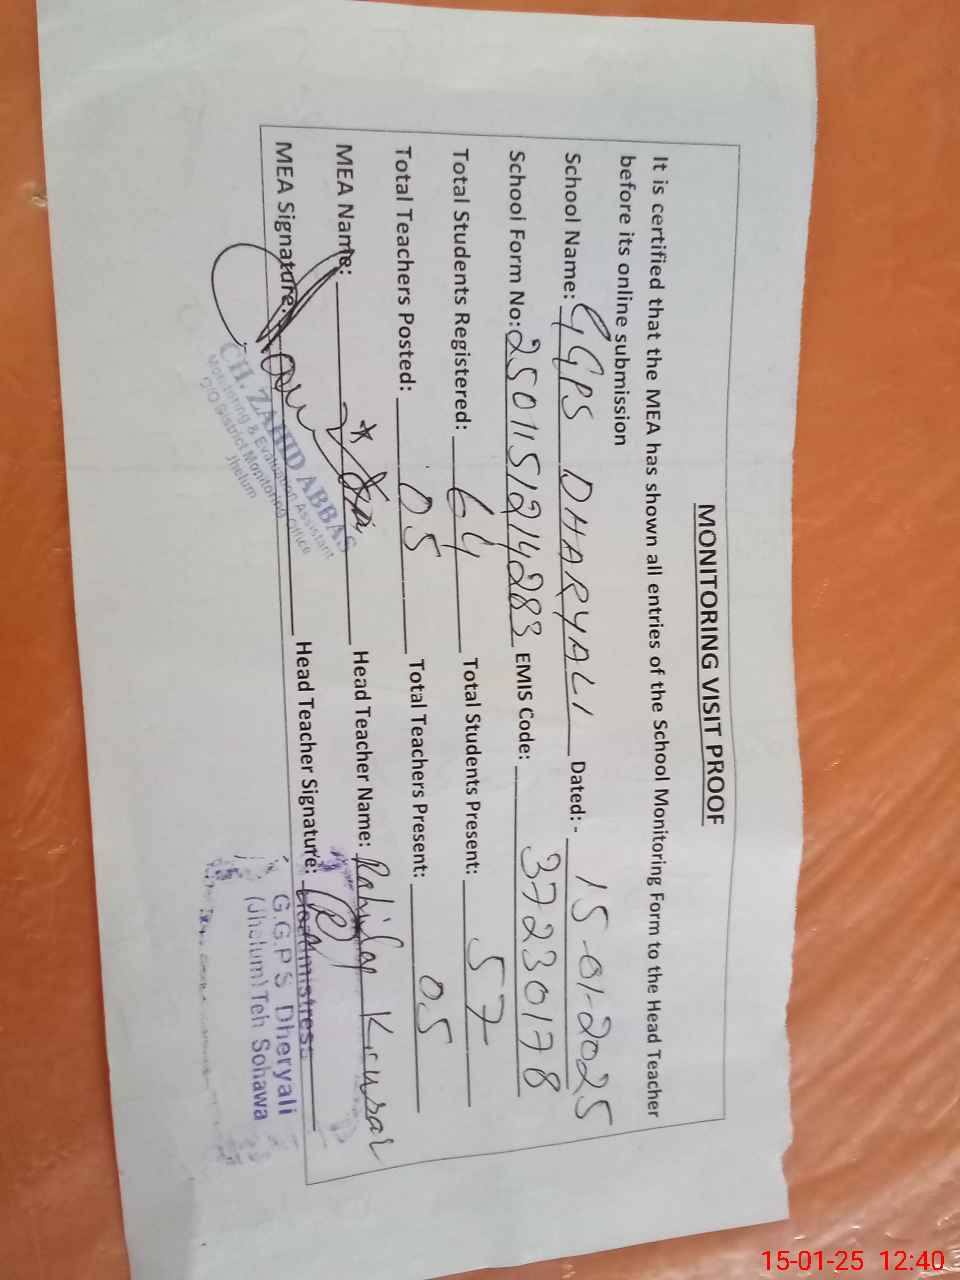 MONITORING VISIT PROOF
It is certified that the MEA has shown all entries of the School Monitoring Form to the Head Teacher
before its online submission
School Name: GGPS DHARYALI Dated: - 15-01-2025
School Form No: 2501151214283 EMIS Code: 37230178
Total Students Registered: 64 Total Students Present: 57
Total Teachers Posted: 05 Total Teachers Present: 05
MEA Name: Head Teacher Name: Kausar
MEA Signature: Head Teacher Signature:
CH. ZAHID ABBAS
Monitoring & Evaluation Assistant
O/O District Monitoring Office
Jhelum
Headmistress
G.G.P.S Dheryali
(Jhelum) Teh Sohawa
15-01-25 12:40